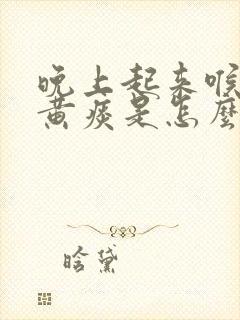 晚上起来喉
黄痰是怎麼
晗黛